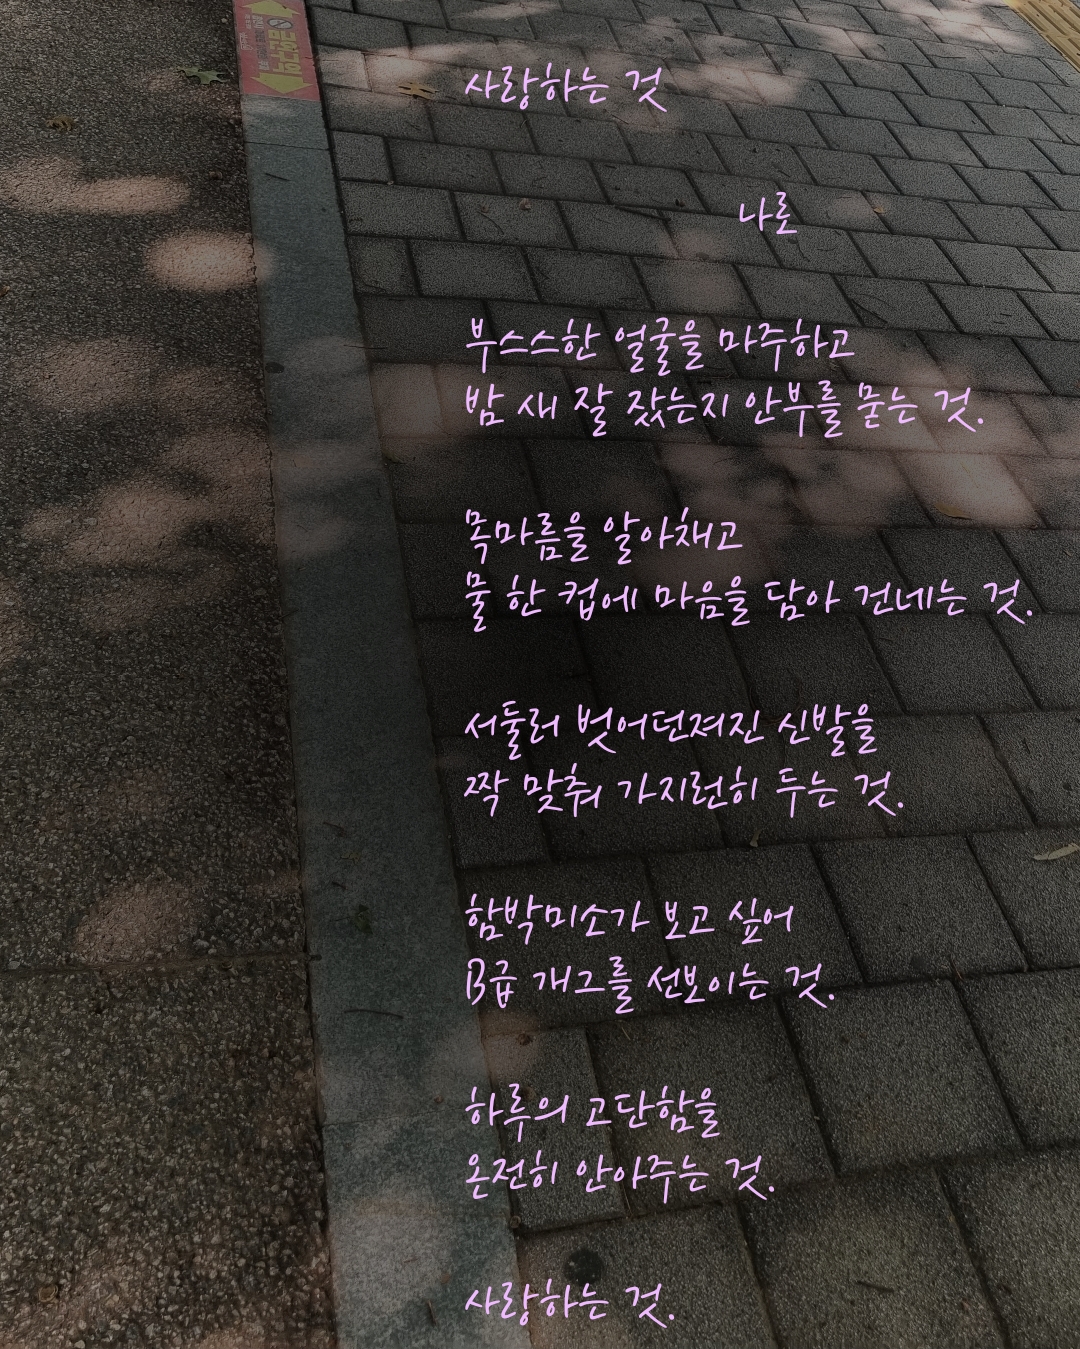 사랑하는 것
나로
부스스한 얼굴을 마주하고
밤 새 잘 잤는지 안부를 묻는 것.
목마름을 알아채고
물 한 컵에 마음을 담아 건네는 것.
서둘러 벗어던져진 신발을
짝 맞춰 가지런히 두는 것.
함박미소가 보고 싶어
B급 개그를 선보이는 것.
하루의 고단함을
온전히 안아주는 것.
사랑하는 것.